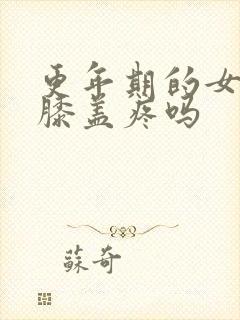 更年期的女
膝盖疼吗
蘇奇